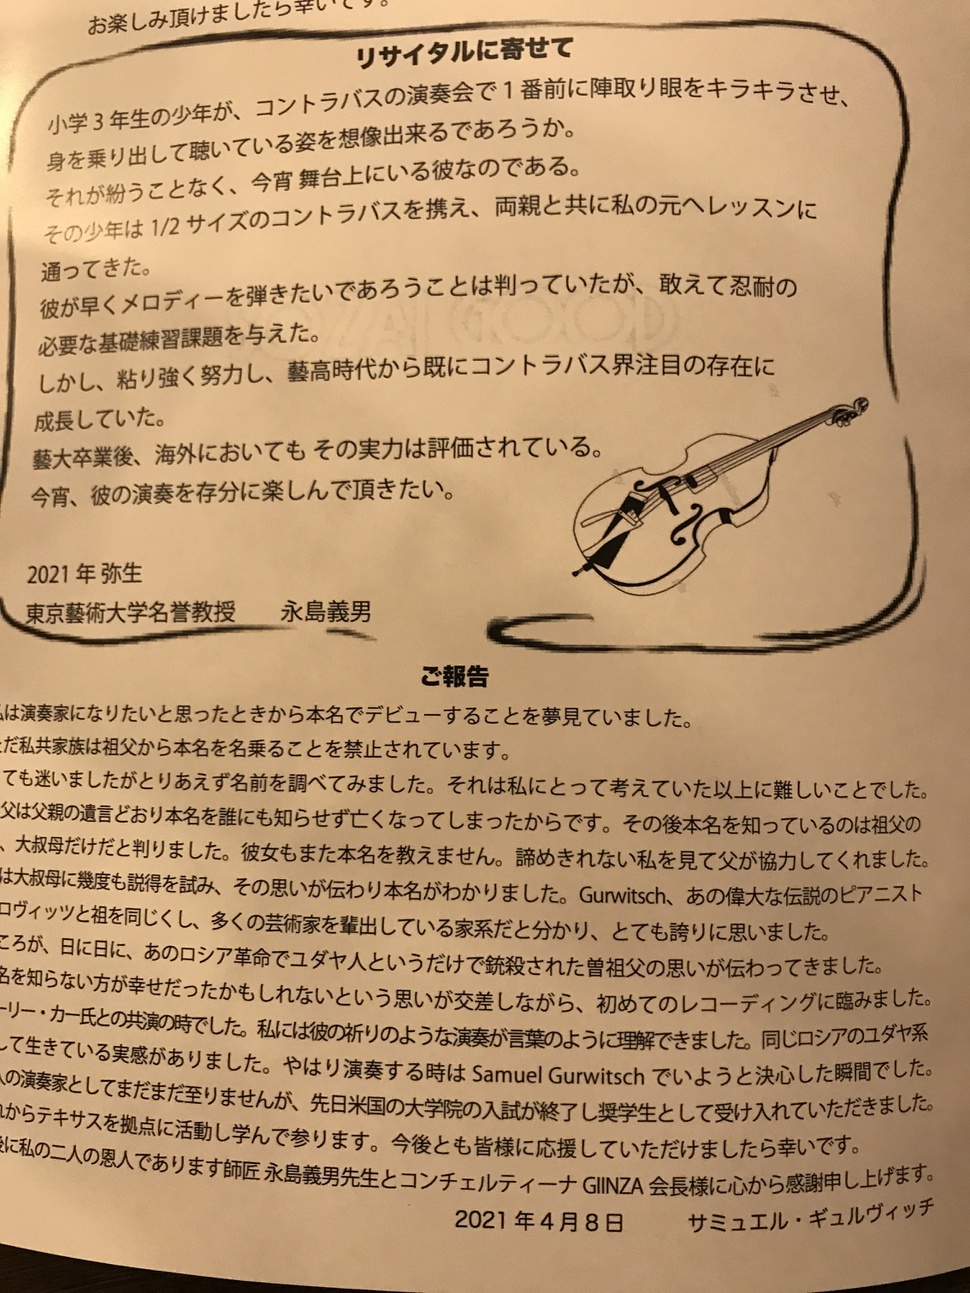 お楽しみ頂けましたら幸いです。
リサイタルに寄せて
小学３年生の少年が、コントラバスの演奏会で１番前に陣取り眼をキラキラさせ、
身を乗り出して聴いている姿を想像出来るであろうか。
それが紛うことなく、今宵 舞台上にいる彼なのである。
その少年は 1/2 サイズのコントラバスを携え、両親と共に私の元へレッスンに
通ってきた。
彼が早くメロディーを弾きたいであろうことは判っていたが、敢えて忍耐の
必要な基礎練習課題を与えた。
しかし、粘り強く努力し、藝高時代から既にコントラバス界注目の存在に
成長していた。
藝大卒業後、海外においても その実力は評価されている。
今宵、彼の演奏を存分に楽しんで頂きたい。
2021 年 弥生
東京藝術大学名誉教授　　永島義男
ご報告
は演奏家になりたいと思ったときから本名でデビューすることを夢見ていました。
だ私共家族は祖父から本名を名乗ることを禁止されています。
ても迷いましたがとりあえず名前を調べてみました。それは私にとって考えていた以上に難しいことでした。
父は父親の遺言どおり本名を誰にも知らせず亡くなってしまったからです。その後本名を知っているのは祖父の
、大叔母だけだと判りました。彼女もまた本名を教えません。諦めきれない私を見て父が協力してくれました。
は大叔母に幾度も説得を試み、その思いが伝わり本名がわかりました。Gurwitsch、あの偉大な伝説のピアニスト
ロヴィッツと祖を同じくし、多くの芸術家を輩出している家系だと分かり、とても誇りに思いました。
ころが、日に日に、あのロシア革命でユダヤ人というだけで銃殺された曽祖父の思いが伝わってきました。
名を知らない方が幸せだったかもしれないという思いが交差しながら、初めてのレコーディングに臨みました。
ーリー・カー氏との共演の時でした。私には彼の祈りのような演奏が言葉のように理解できました。同じロシアのユダヤ系
して生きている実感がありました。やはり演奏する時は Samuel Gurwitsch でいようと決心した瞬間でした。
人の演奏家としてまだまだ至りませんが、先日米国の大学院の入試が終了し奨学生として受け入れていただきました。
れからテキサスを拠点に活動し学んで参ります。今後とも皆様に応援していただけましたら幸いです。
後に私の二人の恩人であります師匠 永島義男先生とコンチェルティーナ GIINZA 会長様に心から感謝申し上げます。
2021 年 4 月 8 日　　　サミュエル・ギュルヴィッチ